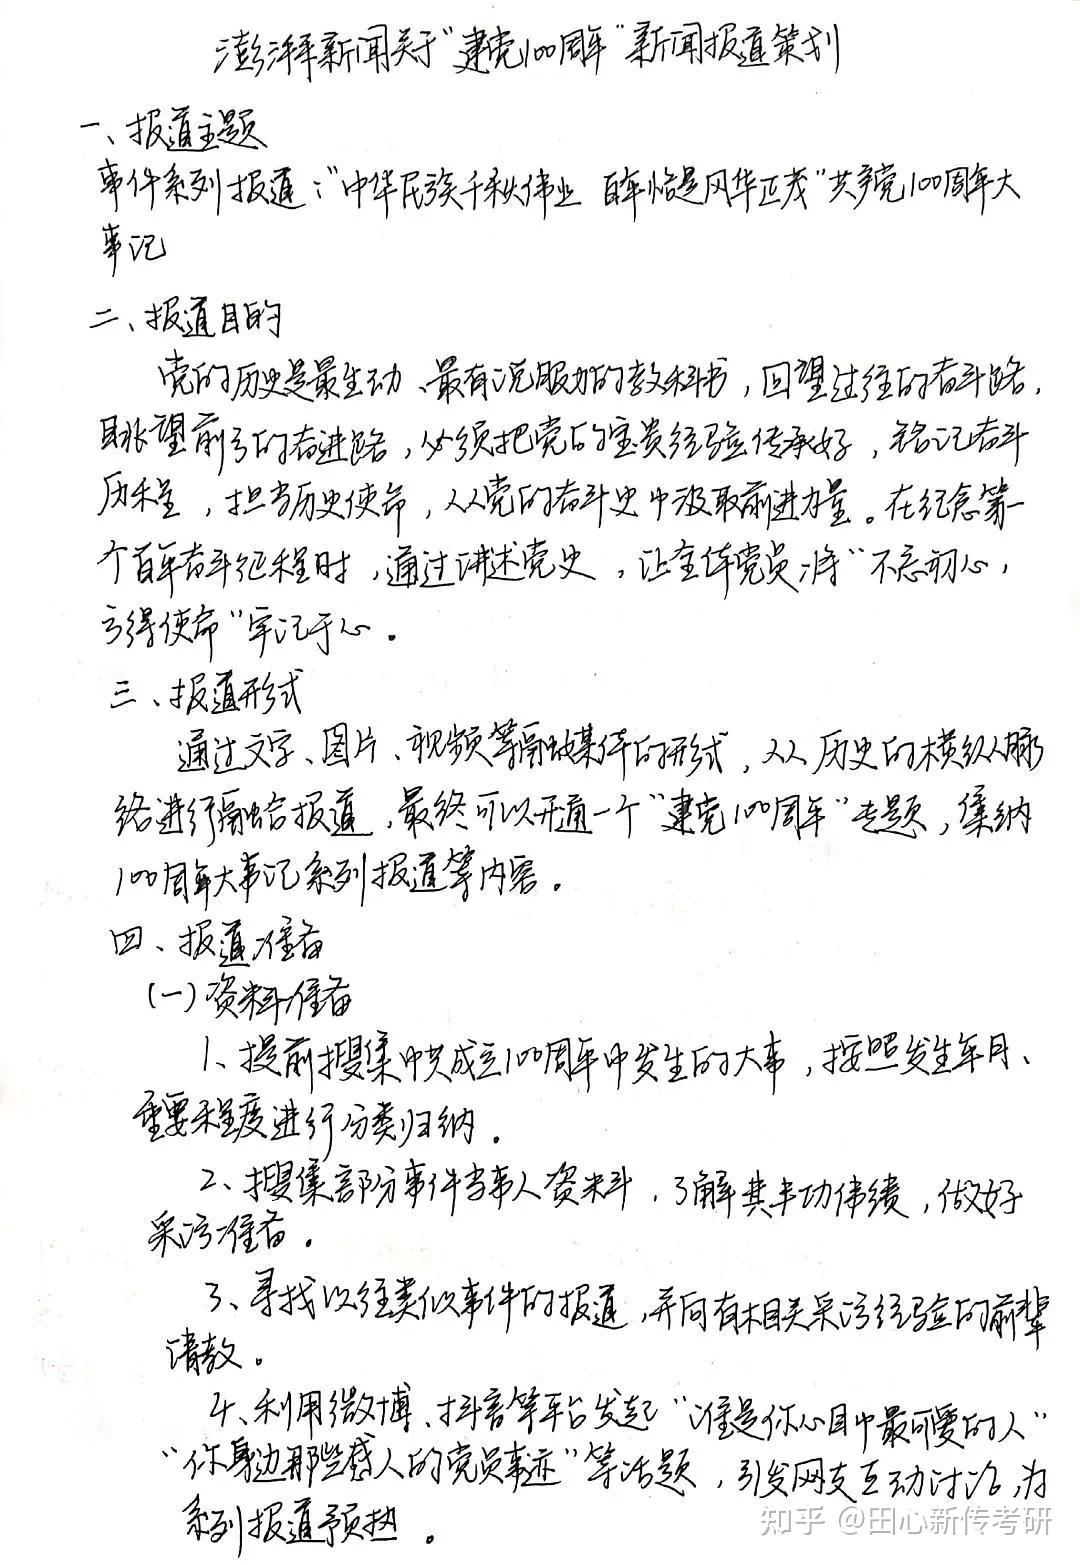 澎湃新闻关于“建党100周年”新闻报道策划
一、报道主题
事件系列报道：“中华民族千秋伟业 百年恰是风华正茂”共产党100周年大
事记
二、报道目的
党的历史是最生动、最有说服力的教科书，回望过往的奋斗路，
眺望前方的奋进路，必须把党的宝贵经验传承好，铭记奋斗
历程，担当历史使命，从党的奋斗史中汲取前进力量。在纪念第一
个百年奋斗征程时，通过讲述党史，让全体党员将“不忘初心，
方得使命”牢记于心。
三、报道形式
通过文字、图片、视频等融媒体的形式，从历史的横纵脉
络进行融合报道，最终可以开通一个“建党100周年”专题，集纳
100周年大事记系列报道等内容。
四、报道准备
（一）资料准备
1、提前搜集中共成立100周年中发生的大事，按照发生年月、
重要程度进行分类归纳。
2、搜集部分事件当事人资料，了解其丰功伟绩，做好
采访准备。
3、寻找以往类似事件的报道，并向有相关采访经验的前辈
请教。
4、利用微博、抖音等平台发起“谁是你心目中最可爱的人”
“你身边那些感人的党员事迹”等话题，引发网友互动讨论，为
系列报道预热。
知乎 @田心新传考研